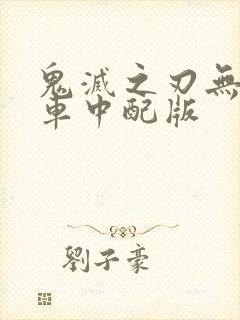 鬼滅之刃無
車中配版
劉子豪